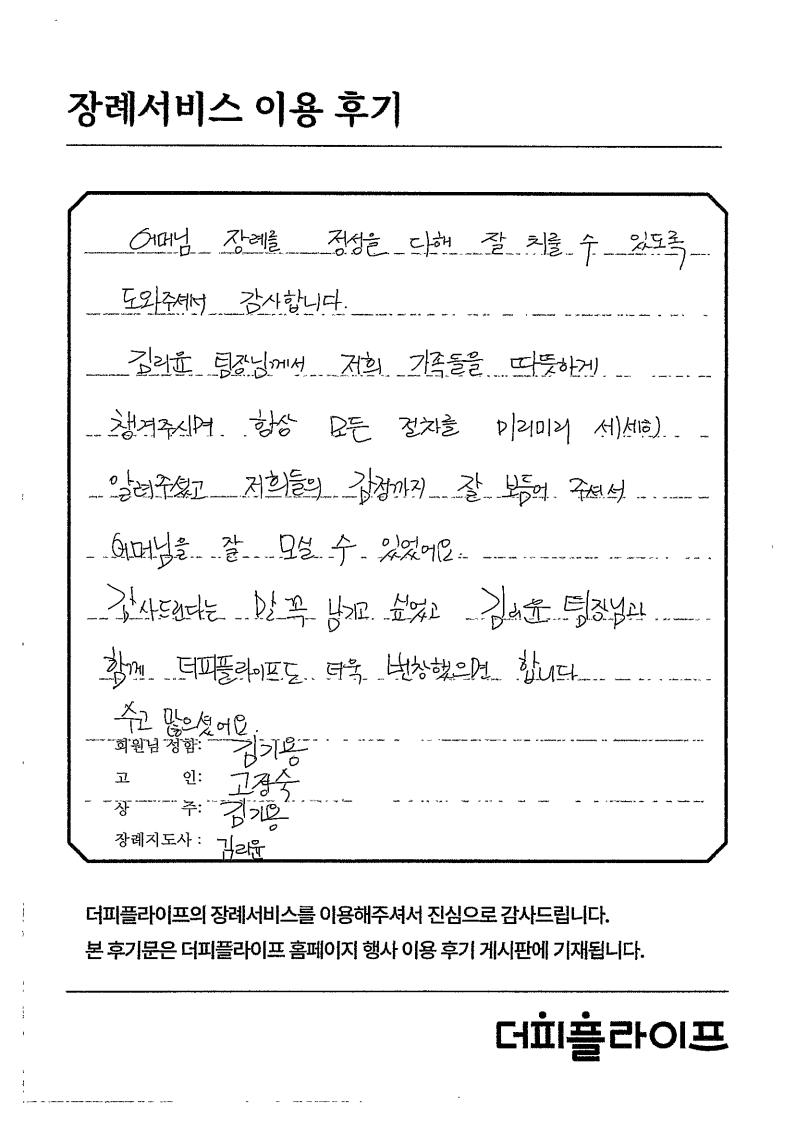 장례서비스 이용 후기
어머님 장례를 정성을 다해 잘 치를 수 있도록
도와주셔서 감사합니다.
김리윤 팀장님께서 저희 가족들을 따뜻하게
챙겨주시며 항상 모든 절차를 미리미리 세세히
알려주셨고 저희들의 감정까지 잘 보듬어 주셔서
어머님을 잘 모실 수 있었어요.
감사드린다는 말 꼭 남기고 싶었고 김리윤 팀장님과
함께 더피플라이프도 더욱 번창했으면 합니다
수고 많으셨어요.
회원님 성함: 김기용
고 인: 고정숙
상 주: 김기용
장례지도사 : 김리윤
더피플라이프의 장례서비스를 이용해주셔서 진심으로 감사드립니다.
본 후기문은 더피플라이프 홈페이지 행사 이용 후기 게시판에 기재됩니다.
더피플라이프